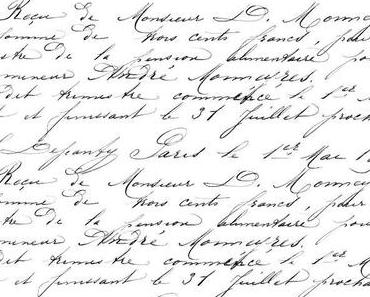 Reçu de Monsieur D. Monnu
omme de trois cents francs, pour
stre de la pension alimentaire po
mineur André Monnuères.
dit trimestre commence le 1er M
et finissant le 31 Juillet proch
Paris le 1er Mai 1
Reçu de Monsieur D. Monnu
omme de trois cents francs, pour
tre de la pension alimentaire pour
mineur André Monnuères.
dit trimestre commence le 1er M
et finissant le 31 Juillet procha